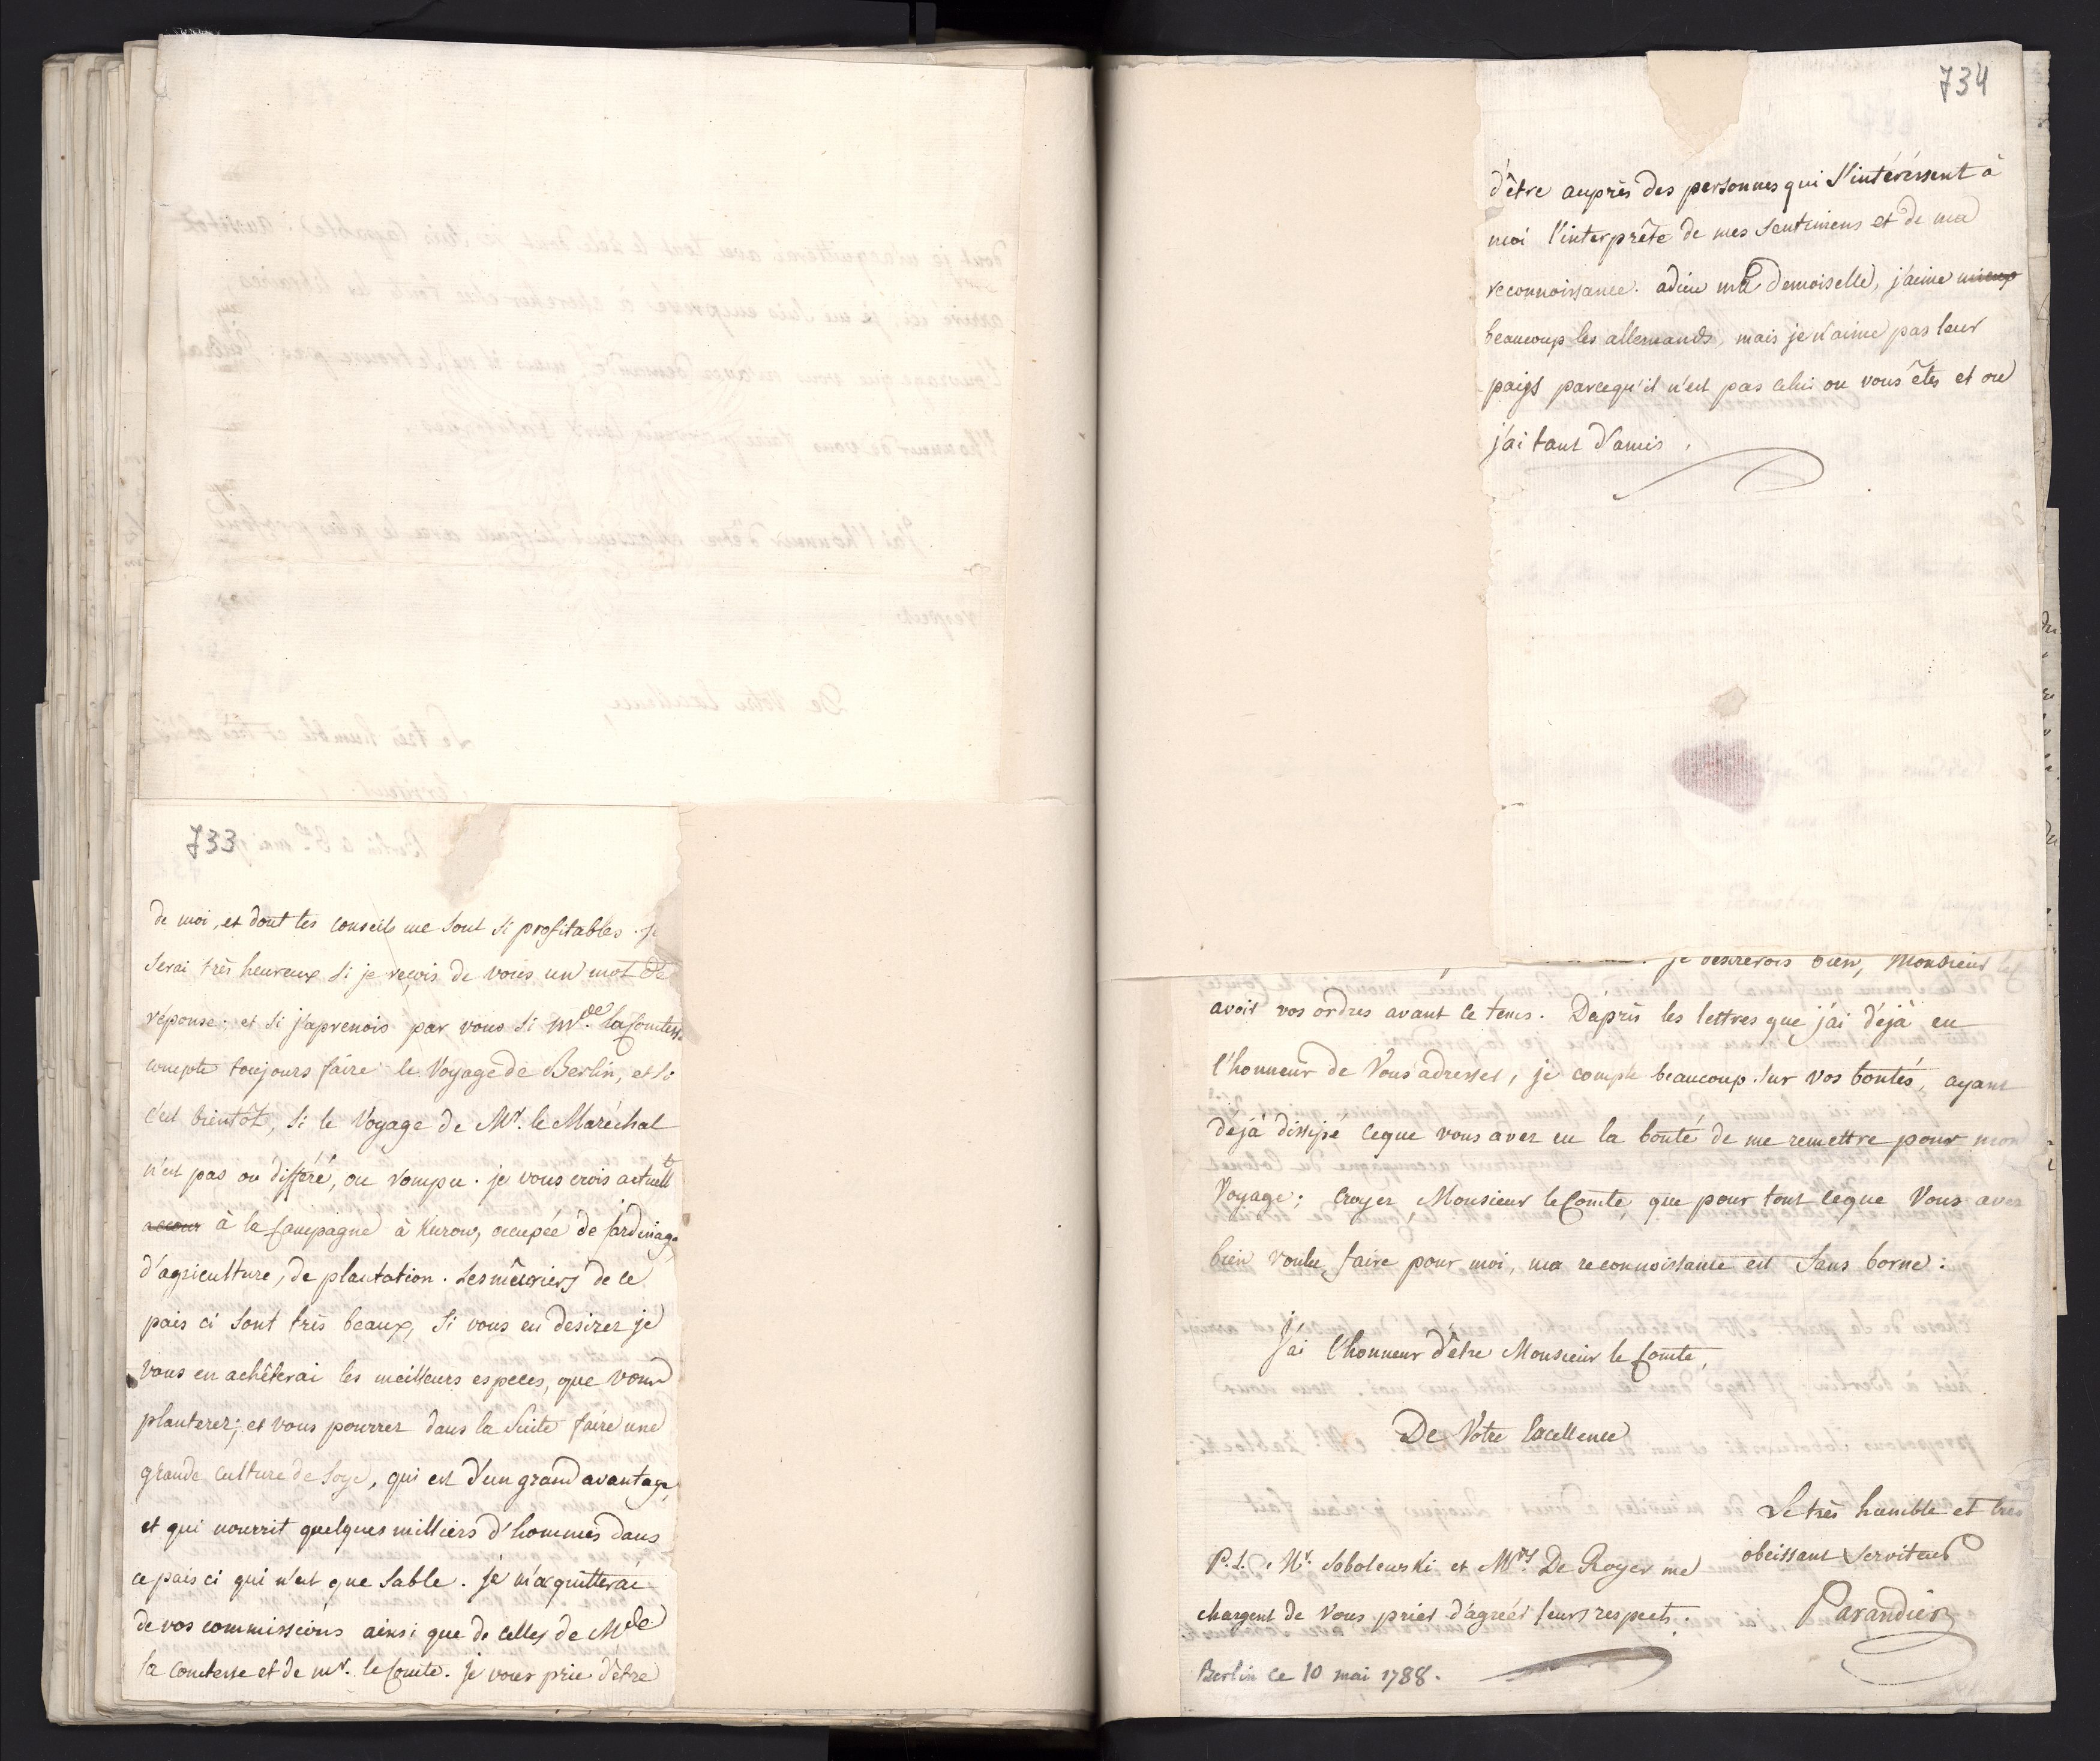 733
de moi, et dont les conseils me sont si profitables. je
serai très heureux si je reçois de vous un mot de
réponse; et si j'aprenois par vous si M.de la Comtesse
compte toujours faire le Voyage de Berlin, et si
c'est bientôt, si le Voyage de Mr. le Maréchal
n'est pas ou différé, ou rompu. je vous crois actuellt
à la Campagne à Kurow, occupée de jardinage
d'agriculture, de plantation. Les mûriers de ce
pais ci sont très beaux, si vous en desirez je
vous en achêterai les meilleurs especes, que vous
planterez; et vous pourrez dans la suite faire une
grande culture de soye, qui est d'un grand avantage,
et qui nourrit quelques milliers d'hommes dans
ce pais ci qui n'est que sable. je m'acquitterai
de vos commissions ainsi que de celles de Mde
la comtesse et de mr. le Comte. je vous prie d'être
734
d'être auprès des personnes qui s'intéréssent à
moi l'interprête de mes sentimens et de ma
reconnoissance. adieu ma demoiselle, j'aime mieux
beaucoup les allemands, mais je n'aime pas leur
païs parcequ'il n'est pas celui ou vous êtes et ou
j'ai tant d'amis.
je desirerois bien, Monsieur
avoir vos ordres avant ce tems. D'après les lettres que j'ai déjà eu
l'honneur de Vous adresser, je compte beaucoup sur vos bontés, ayant
déjà dissipé ceque vous avez eu la bonté de me remettre pour mon
Voyage; Croyez, Monsieur le Comte, que pour tout ceque Vous avez
bien voulu faire pour moi, ma reconnoissance est sans borne:
j'ai l'honneur d'être Monsieur le Comte,
De Votre Excellence
Le très humble et très
obeissant serviteur
Parandier
P.S. Mr. Sobolewski et Mrs. De Royer me
chargent de Vous prier d'agréer leurs respects.
Berlin ce 10 mai 1788.